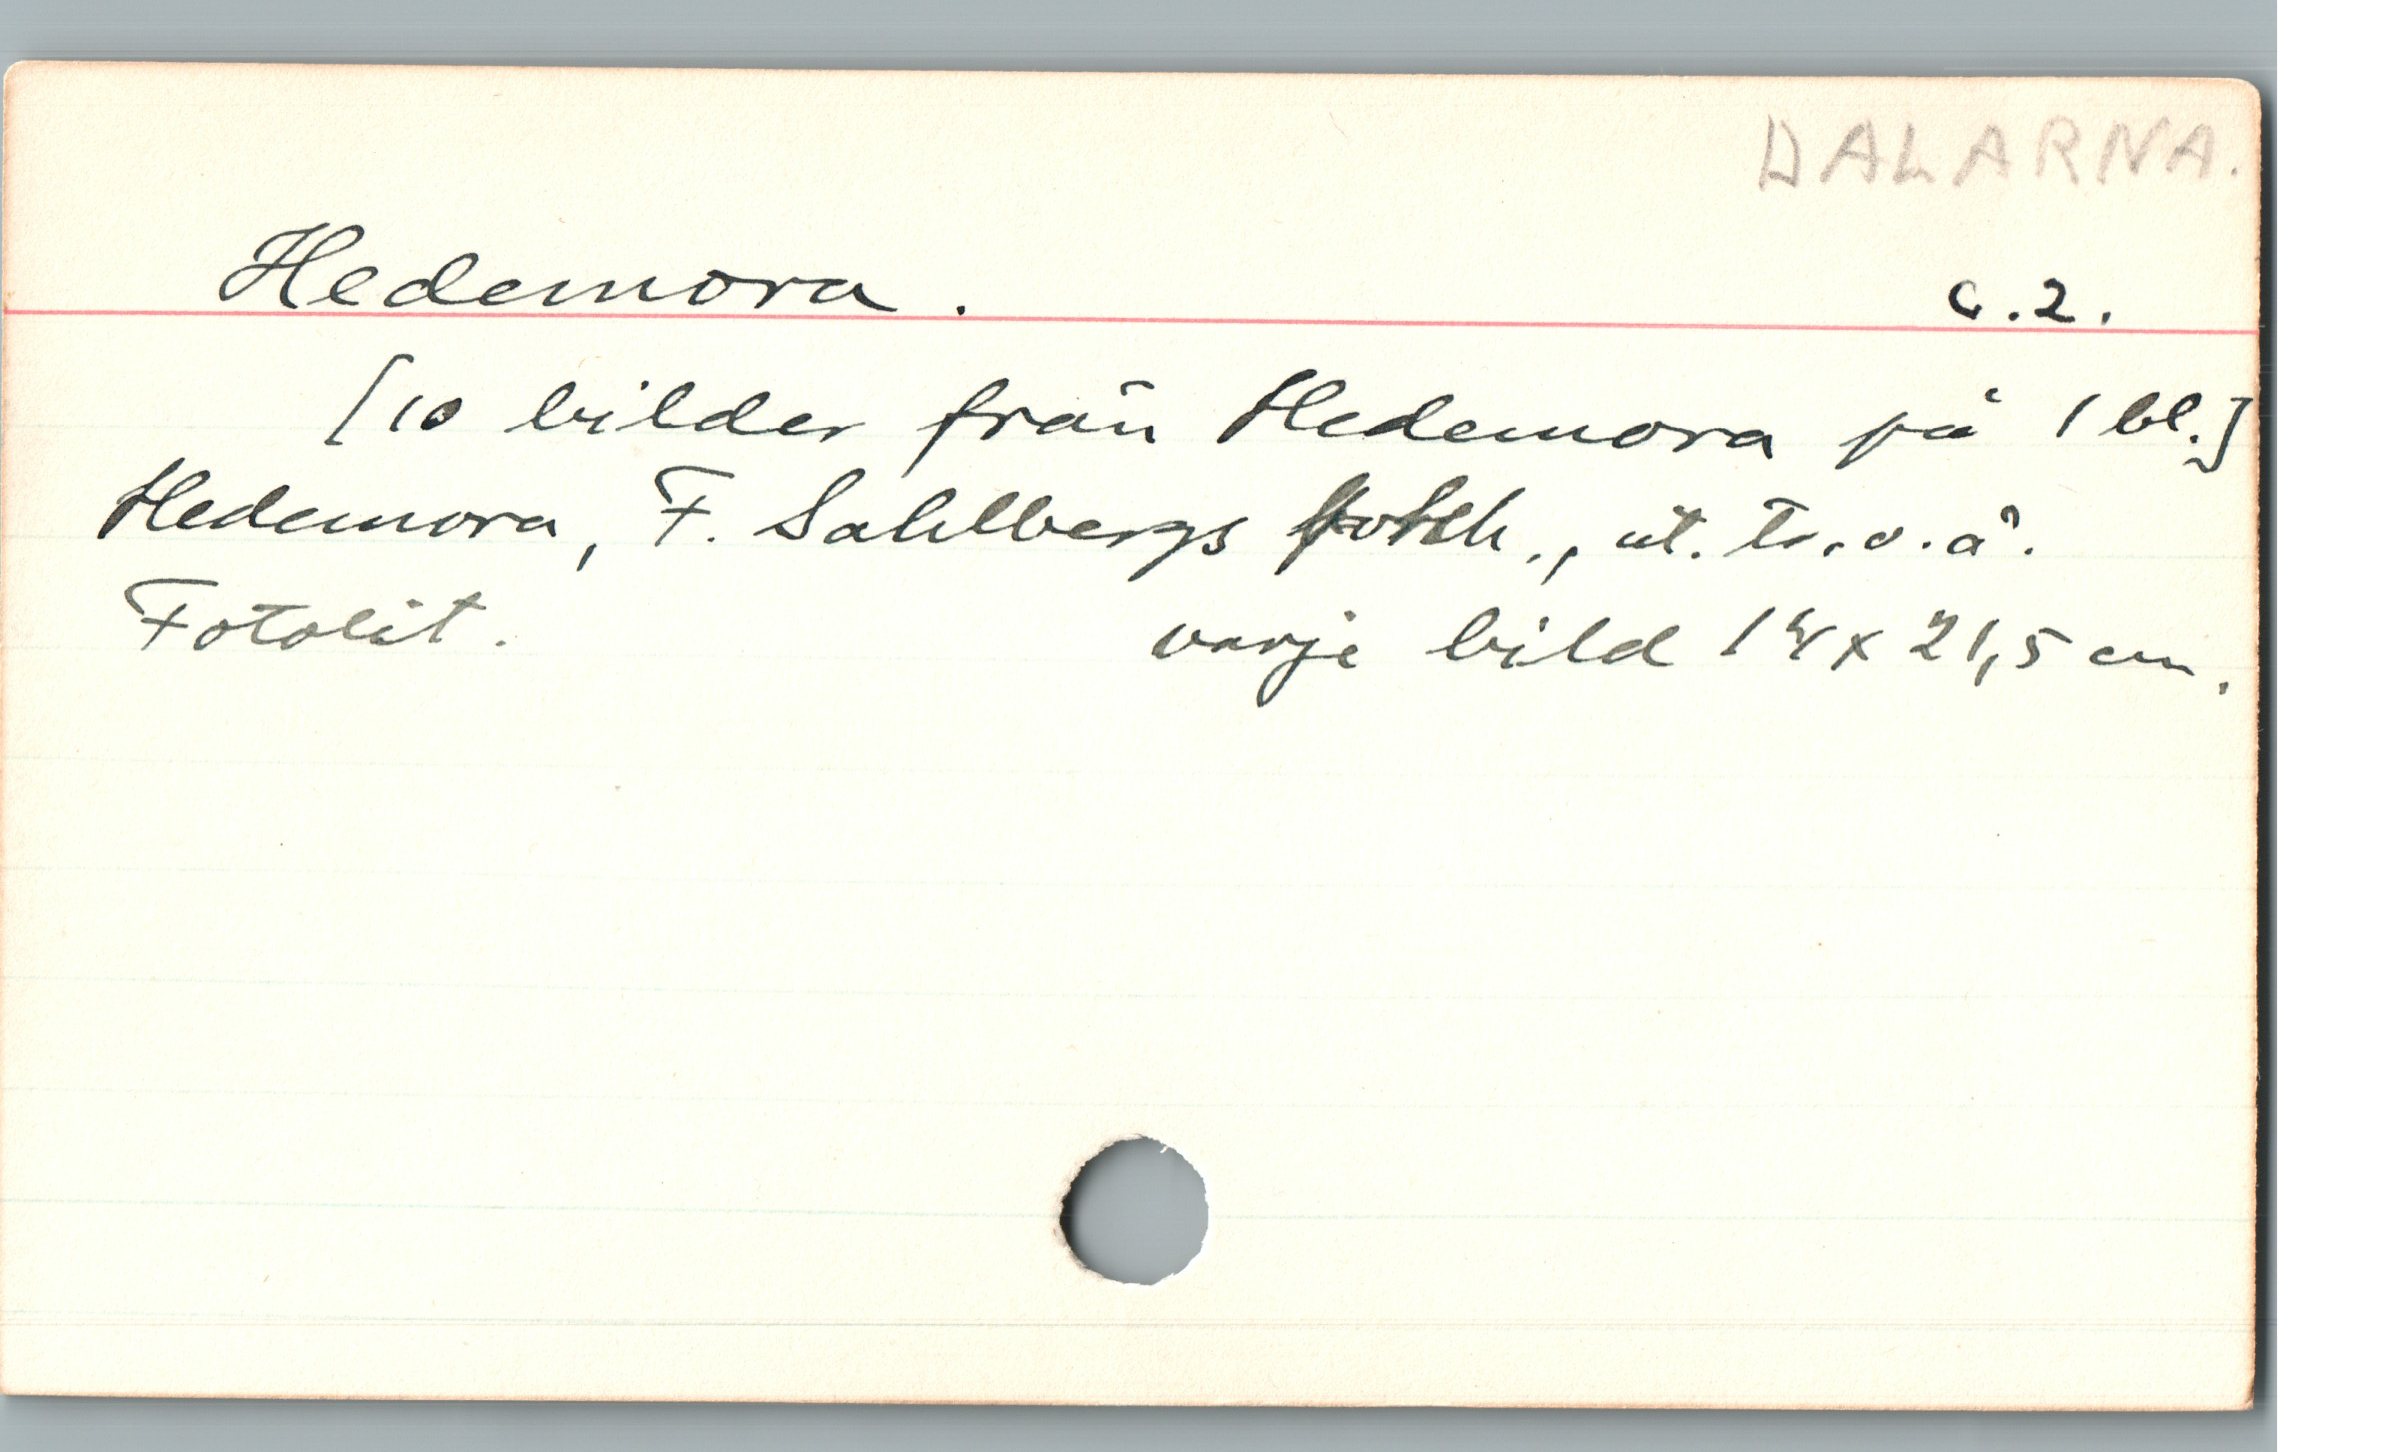 DALARNA.
Hedemora. C.2.
[10 bilder från Hedemora på 1 bl.]
Hedemora, F. Sahlbergs bokh., ut. tr. o. å.
Fotolit. varje bild 14 x 21,5 cm.